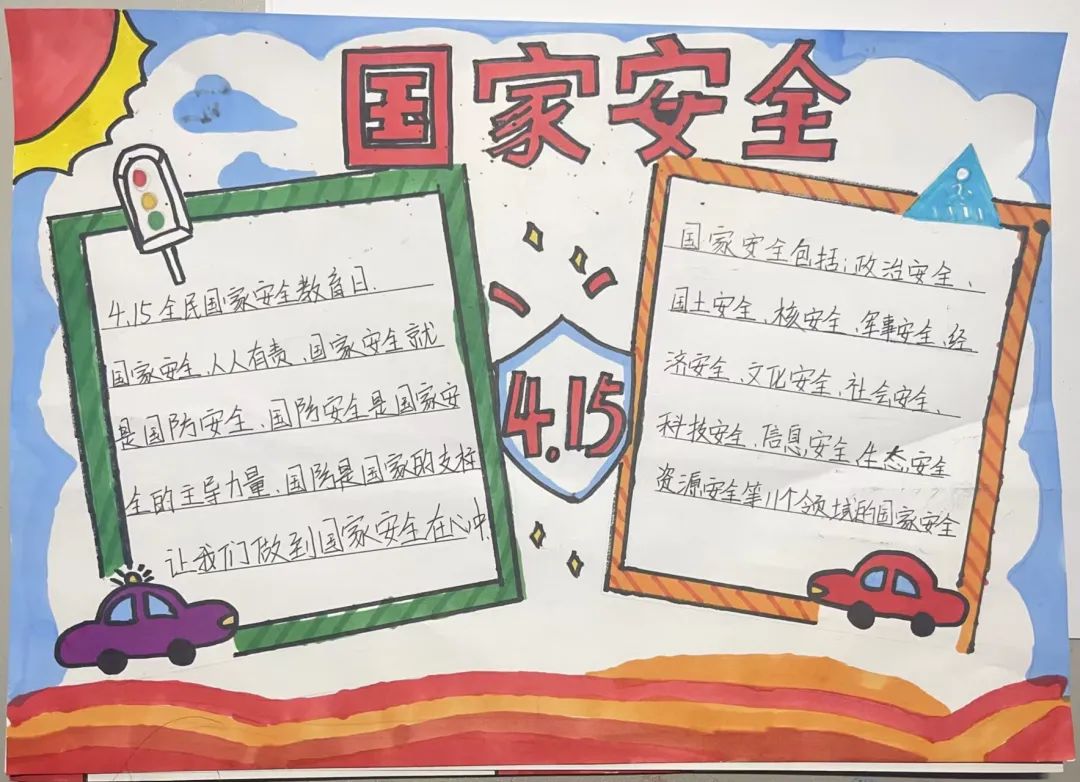 国家安全
4.15全民国家安全教育日.
国家安全、人人有责、国家安全就
是国防安全、国防安全是国家安
全的主导力量、国防是国家的支柱
让我们做到国家安全在心中.
4.15
国家安全包括:政治安全、
国土安全、核安全、军事安全、经
济安全、文化安全、社会安全、
科技安全、信息安全、生态安全
资源安全等11个领域的国家安全